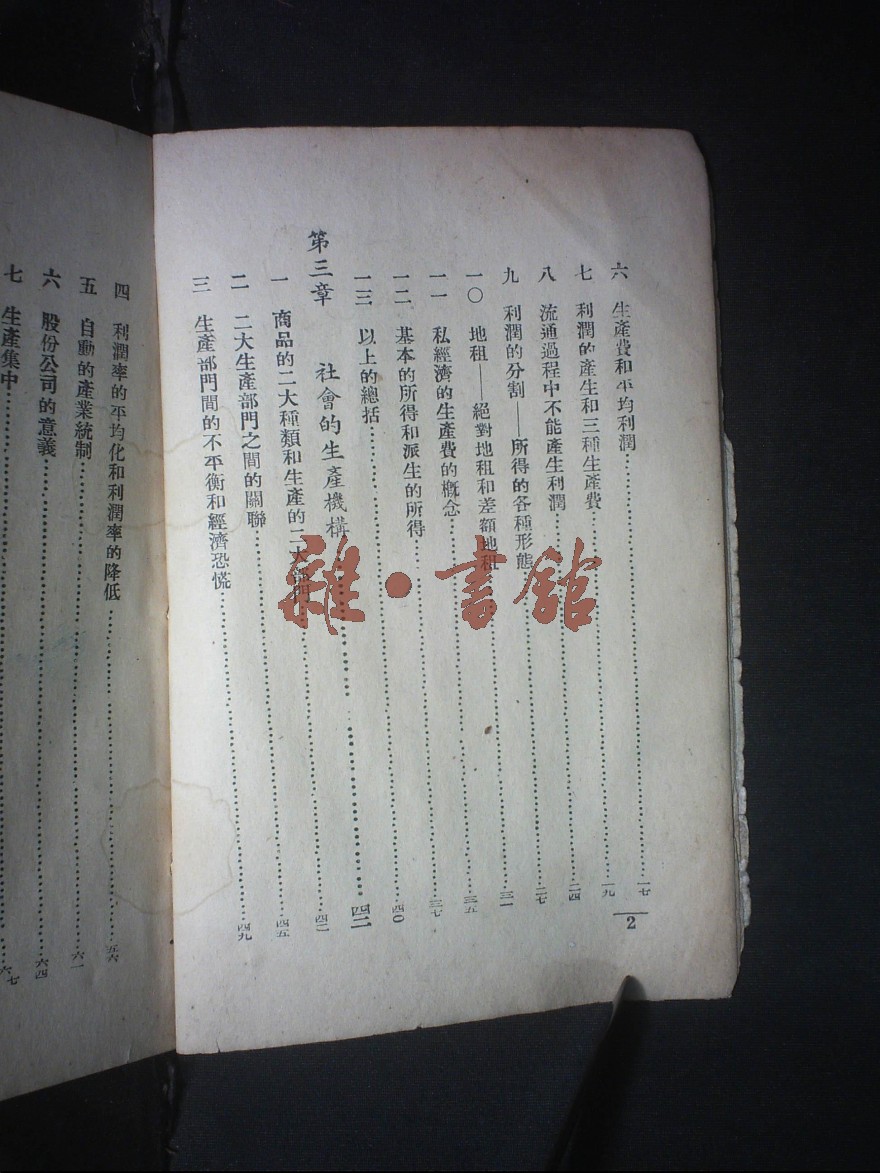 六 生產費和平均利潤……一七
七 利潤的產生和三種生產費……一九
八 流通過程中不能產生利潤……二四
九 利潤的分割——所得的各種形態……二七
一〇 地租——絕對地租和差額地租……三一
一一 私經濟的生產費的概念……三五
一二 基本的所得和派生的所得……三七
一三 以上的總括……四〇
第三章 社會的生產機構……四二
一 商品的二大種類和生產的二大部門……四二
二 二大生產部門之間的關聯……四五
三 生產部門間的不平衡和經濟恐慌……四九
2
四 利潤率的平均化和利潤率的降低……五六
五 自動的產業統制……六一
六 股份公司的意義……六四
七 生產集中……六七
雜·書館